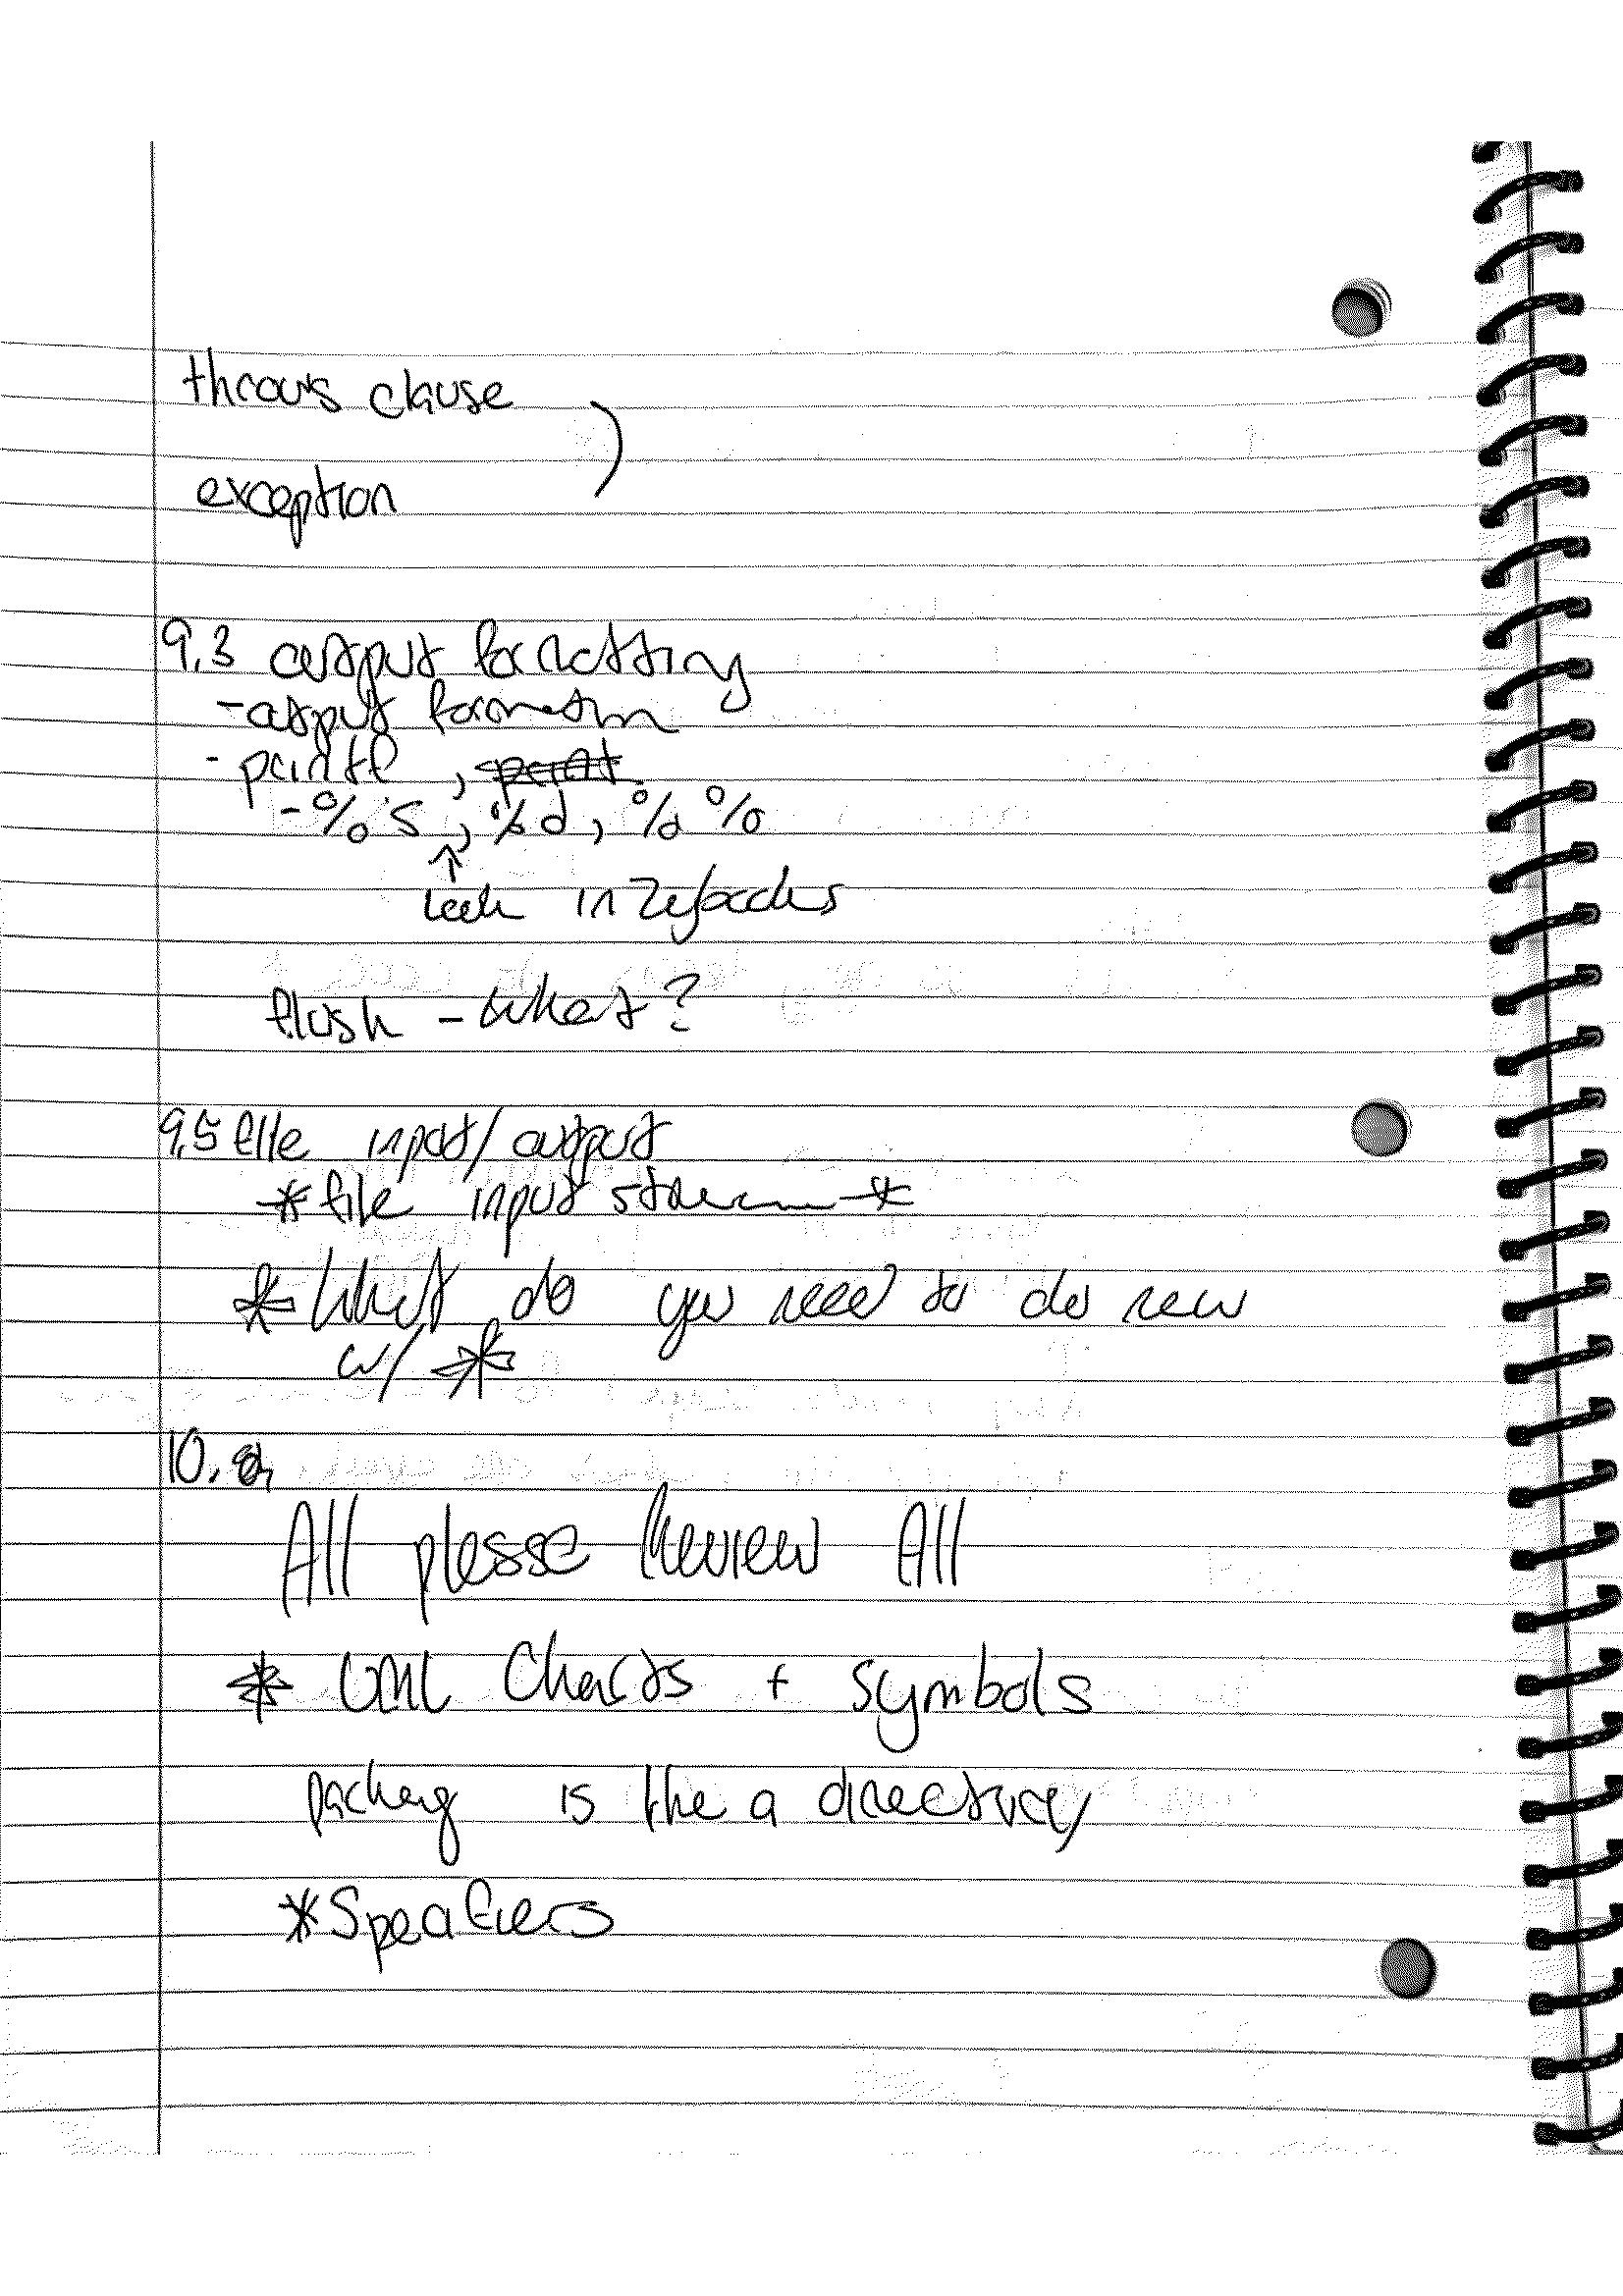 throws clause
exception
9.3 output formatting
- output formatting
- printf , print
- %s , %d , %%
look in Zybooks
flush - what?
9.5 file input/output
* file input stream *
* What do you need to do new
w/ *
10.
All plesse Review All
* UML Charts + symbols
is the a directory
* Specifiers